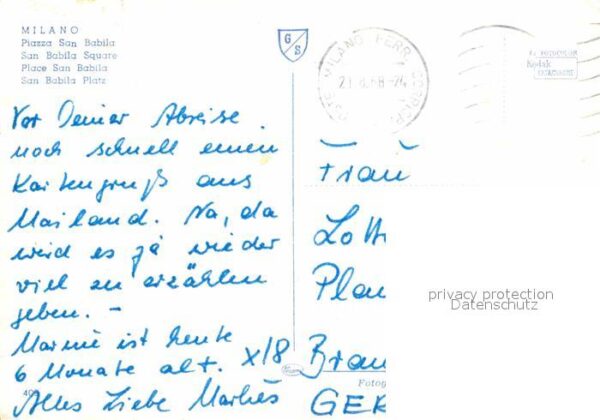 MILANO
Piazza San Babila
San Babila Square
Place San Babila
San Babila Platz
G
S
MILANO FERR. CORR.
Kodak
Vor Deiner Abreise
noch schnell einen
Kartengruß aus
Mailand. Na, da
wird es ja wieder
viel zu erzählen
geben. –
ist heute
6 Monate alt. X/8
Alles Liebe Marlies
Frau
Lott
Plan
Brau
GER
privacy protection
Datenschutz
Fotog